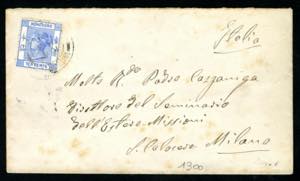 HONG KONG
Italia
Molto R.do Padre Cazzaniga
Direttore del Seminario
dell'Estere Missioni
S. Calocero Milano
1300